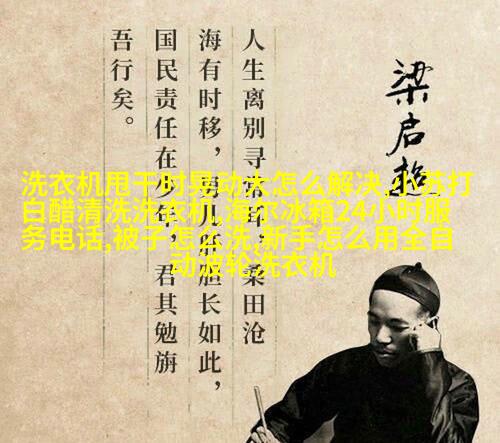 人生离别寻常,桑田沧
海有时移,男儿肝胆长如此,
国民责任在少年,君其勉旃
吾行矣。
梁启超
洗衣机甩干时晃动大怎么解决,小苏打
白醋清洗洗衣机,海尔冰箱24小时服
务电话,被子怎么洗,新手怎么用全自
动波轮洗衣机